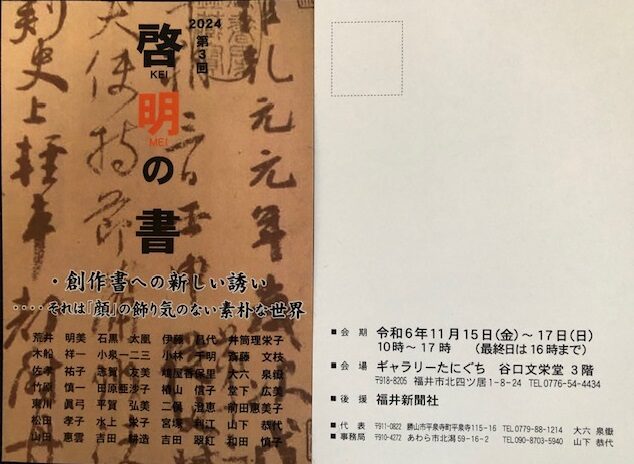 2024
第3回
啓
KEI
明
MEI
の
書
・創作書への新しい誘い
‥‥それは「顔」の飾り気のない素朴な世界
荒井 明美 石黒 太凰 伊藤 昌代 井筒理栄子
木船 祥一 小泉一二三 小林 千明 斎藤 文枝
佐孝 祐子 志賀 友美 大六 泉鏃
竹原 慎一 田原亜沙子 椿山 信子 堂下 広美
東川 眞弓 平賀 弘美 二俣 澄恵 前田恵美子
松田 孝子 水上 栄子 宮塚 利江 山下 恭代
山田 恵雲 吉田 耕造 吉田 翠紅 和田 慎子
■ 会 期 令和6年11月15日(金)～17日(日)
10時～17時 (最終日は16時まで)
■ 会 場 ギャラリーたにぐち 谷口文栄堂 3階
〒918-8205 福井市北四ツ居1-8-24 TEL0776-54-4434
■ 後 援 福井新聞社
■ 代 表 〒911-0822 勝山市平泉寺町平泉寺115-16 TEL0779-88-1214 大六 泉鏃
■ 事務局 〒910-4272 あわら市北潟59-16-2 TEL090-8703-5940 山下 恭代